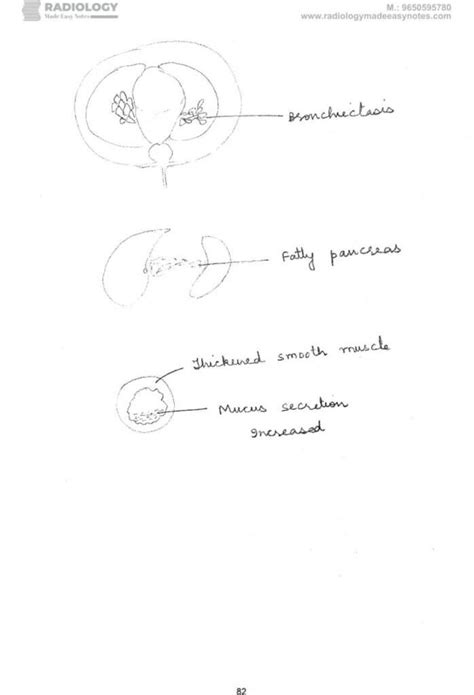 RADIOLOGY
Made Easy Notes
M.: 9650595780
www.radiologymadeeasynotes.com
Bronchiectasis
Fatly pancreas
Thickened smooth muscle
Mucus secretion
Increased
82